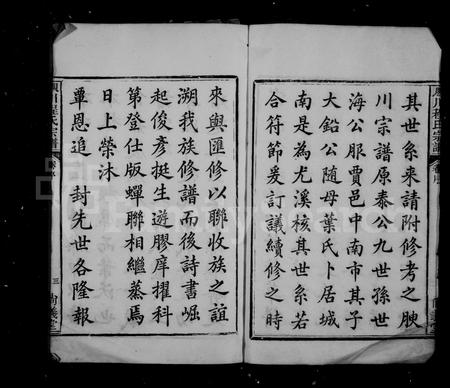 其世系來請附修考之腴
川宗譜原泰公九世孫世
海公服賈邑中南市其子
大鉛公隨母葉氏卜居城
南是為尤溪核其世系若
合符節爰訂議續修之時
來與匯修以聯收族之誼
溯我族修譜而後詩書崛
起俊彥挺生遊膠庠擢科
第登仕版蟬聯相繼蒸焉
日上榮沐
覃恩追 封先世各隆報
三